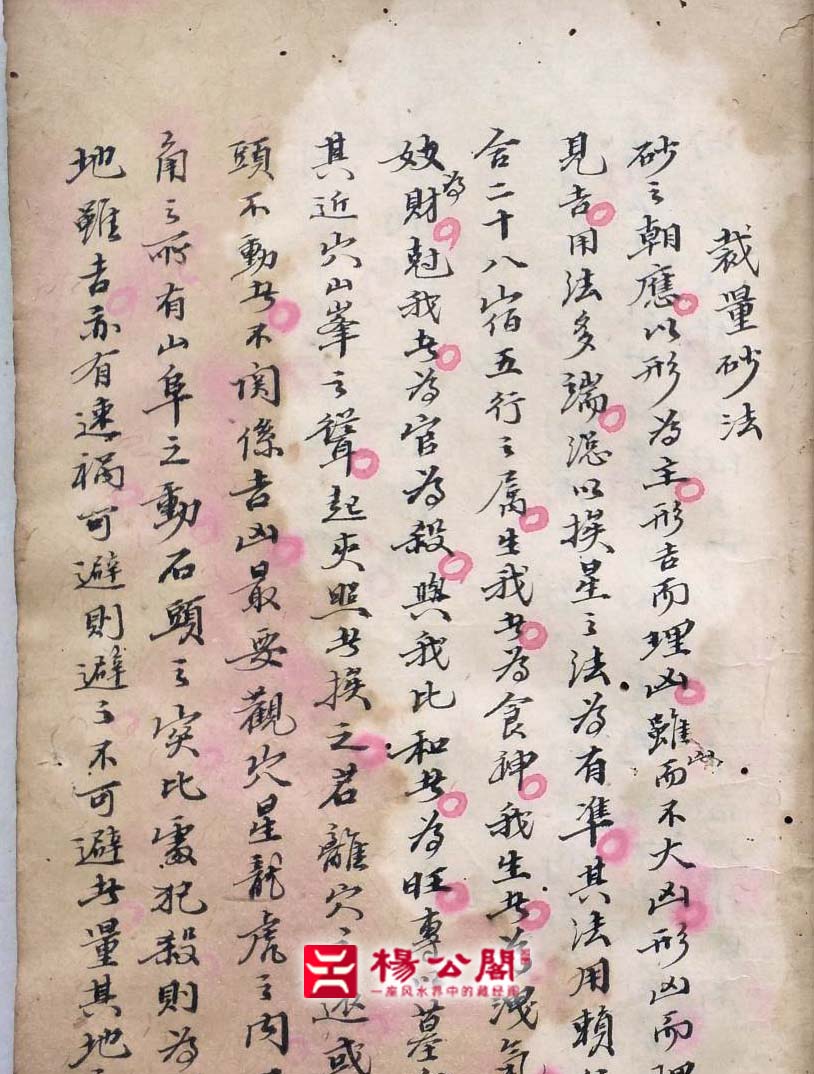 裁量砂法
砂之朝應以形為主形吉而理凶雖凶而不大凶形凶而理
見吉用法多端總以挨星之法為有準其法用賴
合二十八宿五行之属生我者為食神我生者為洩氣
妓財為尅我者為官為殺與我比和者為旺專以墓
其近穴山峯之聳起夾照者挨之若離穴之遠或
頭不動者不関係吉凶最要觀穴星龍虎之内
角之所有山阜之動石頭之突比處犯殺則為
地雖吉亦有速禍可避則避之不可避者量其地
楊公閣
一座风水界中的藏经阁